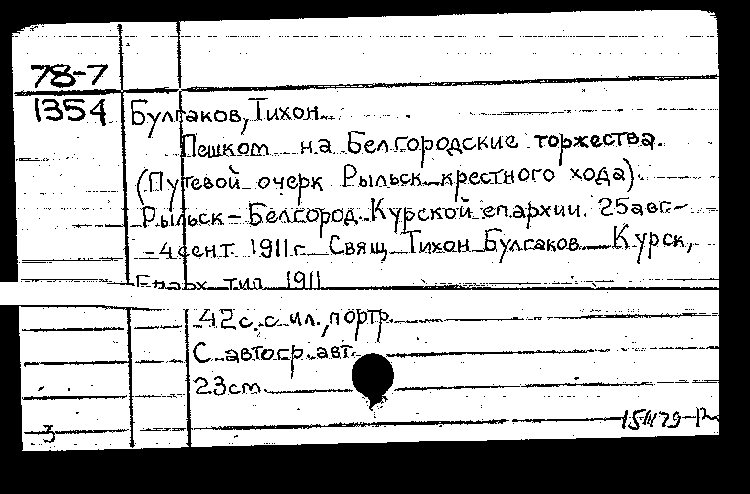 78-7
1354
Булгаков, Тихон.
Пешком на Белгородские торжества.
(Путевой очерк Рыльск. крестного хода).
Рыльск – Белгород. Курской епархии. 25 авг.-
-4 сент. 1911 г. Свящ. Тихон Булгаков. Курск,
Епарх. тип. 1911
42 с. с ил., портр.
С автогр. авт.
23 см.
3